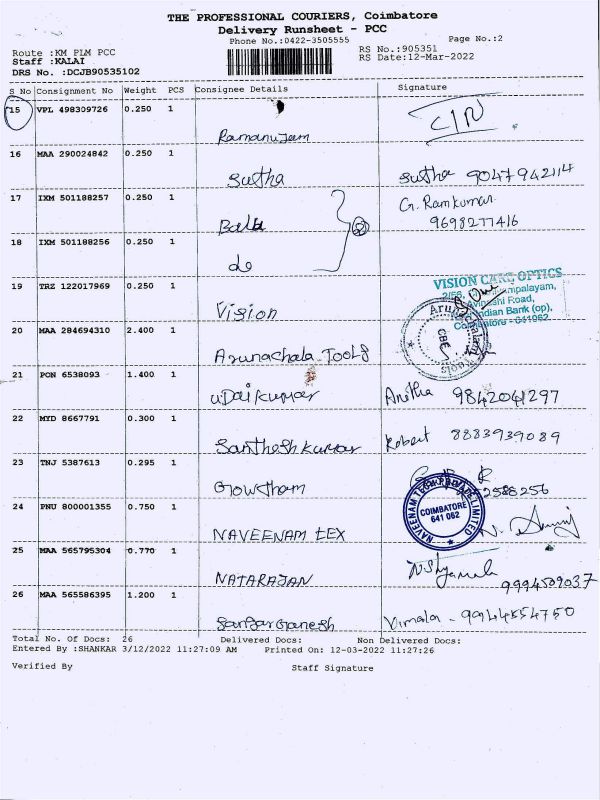 THE PROFESSIONAL COURIERS, Coimbatore
Delivery Runsheet - PCC
Phone No.:0422-3505555
Page No.:2
Route :KM PLM PCC
RS No.:905351
Staff :KALAI
RS Date:12-Mar-2022
DRS No. :DCJB90535102
S No Consignment No Weight PCS Consignee Details Signature
15 VPL 498309726 0.250 1
Ramanujam
16 MAA 290024842 0.250 1
Sutha Sutha 9047942114
17 IXM 501188257 0.250 1 G. Ramkumar
9698277416
18 IXM 501188256 0.250 1
do
19 TRZ 122017969 0.250 1
Vision
VISION CARE OPTICS
Avinashi Road,
Indian Bank (op),
Coimbatore - 641062
20 MAA 284694310 2.400 1
Arunachala Tools
Arunachalam
CBE
Tools
21 PCN 6538093 1.400 1
uDaikumar Anitha 9842041297
22 MYD 8667791 0.300 1
Santhesh kumar Robert 8883939089
23 TNJ 5387613 0.295 1
Gowtham
24 PNU 800001355 0.750 1
NAVEENAM TEX
COIMBATORE
641 062
25 MAA 565795304 0.770 1
NATARAJAN 9994509037
26 MAA 565586395 1.200 1
Vimala - 9944854750
Total No. Of Docs: 26 Delivered Docs: Non Delivered Docs:
Entered By :SHANKAR 3/12/2022 11:27:09 AM Printed On: 12-03-2022 11:27:26
Verified By Staff Signature